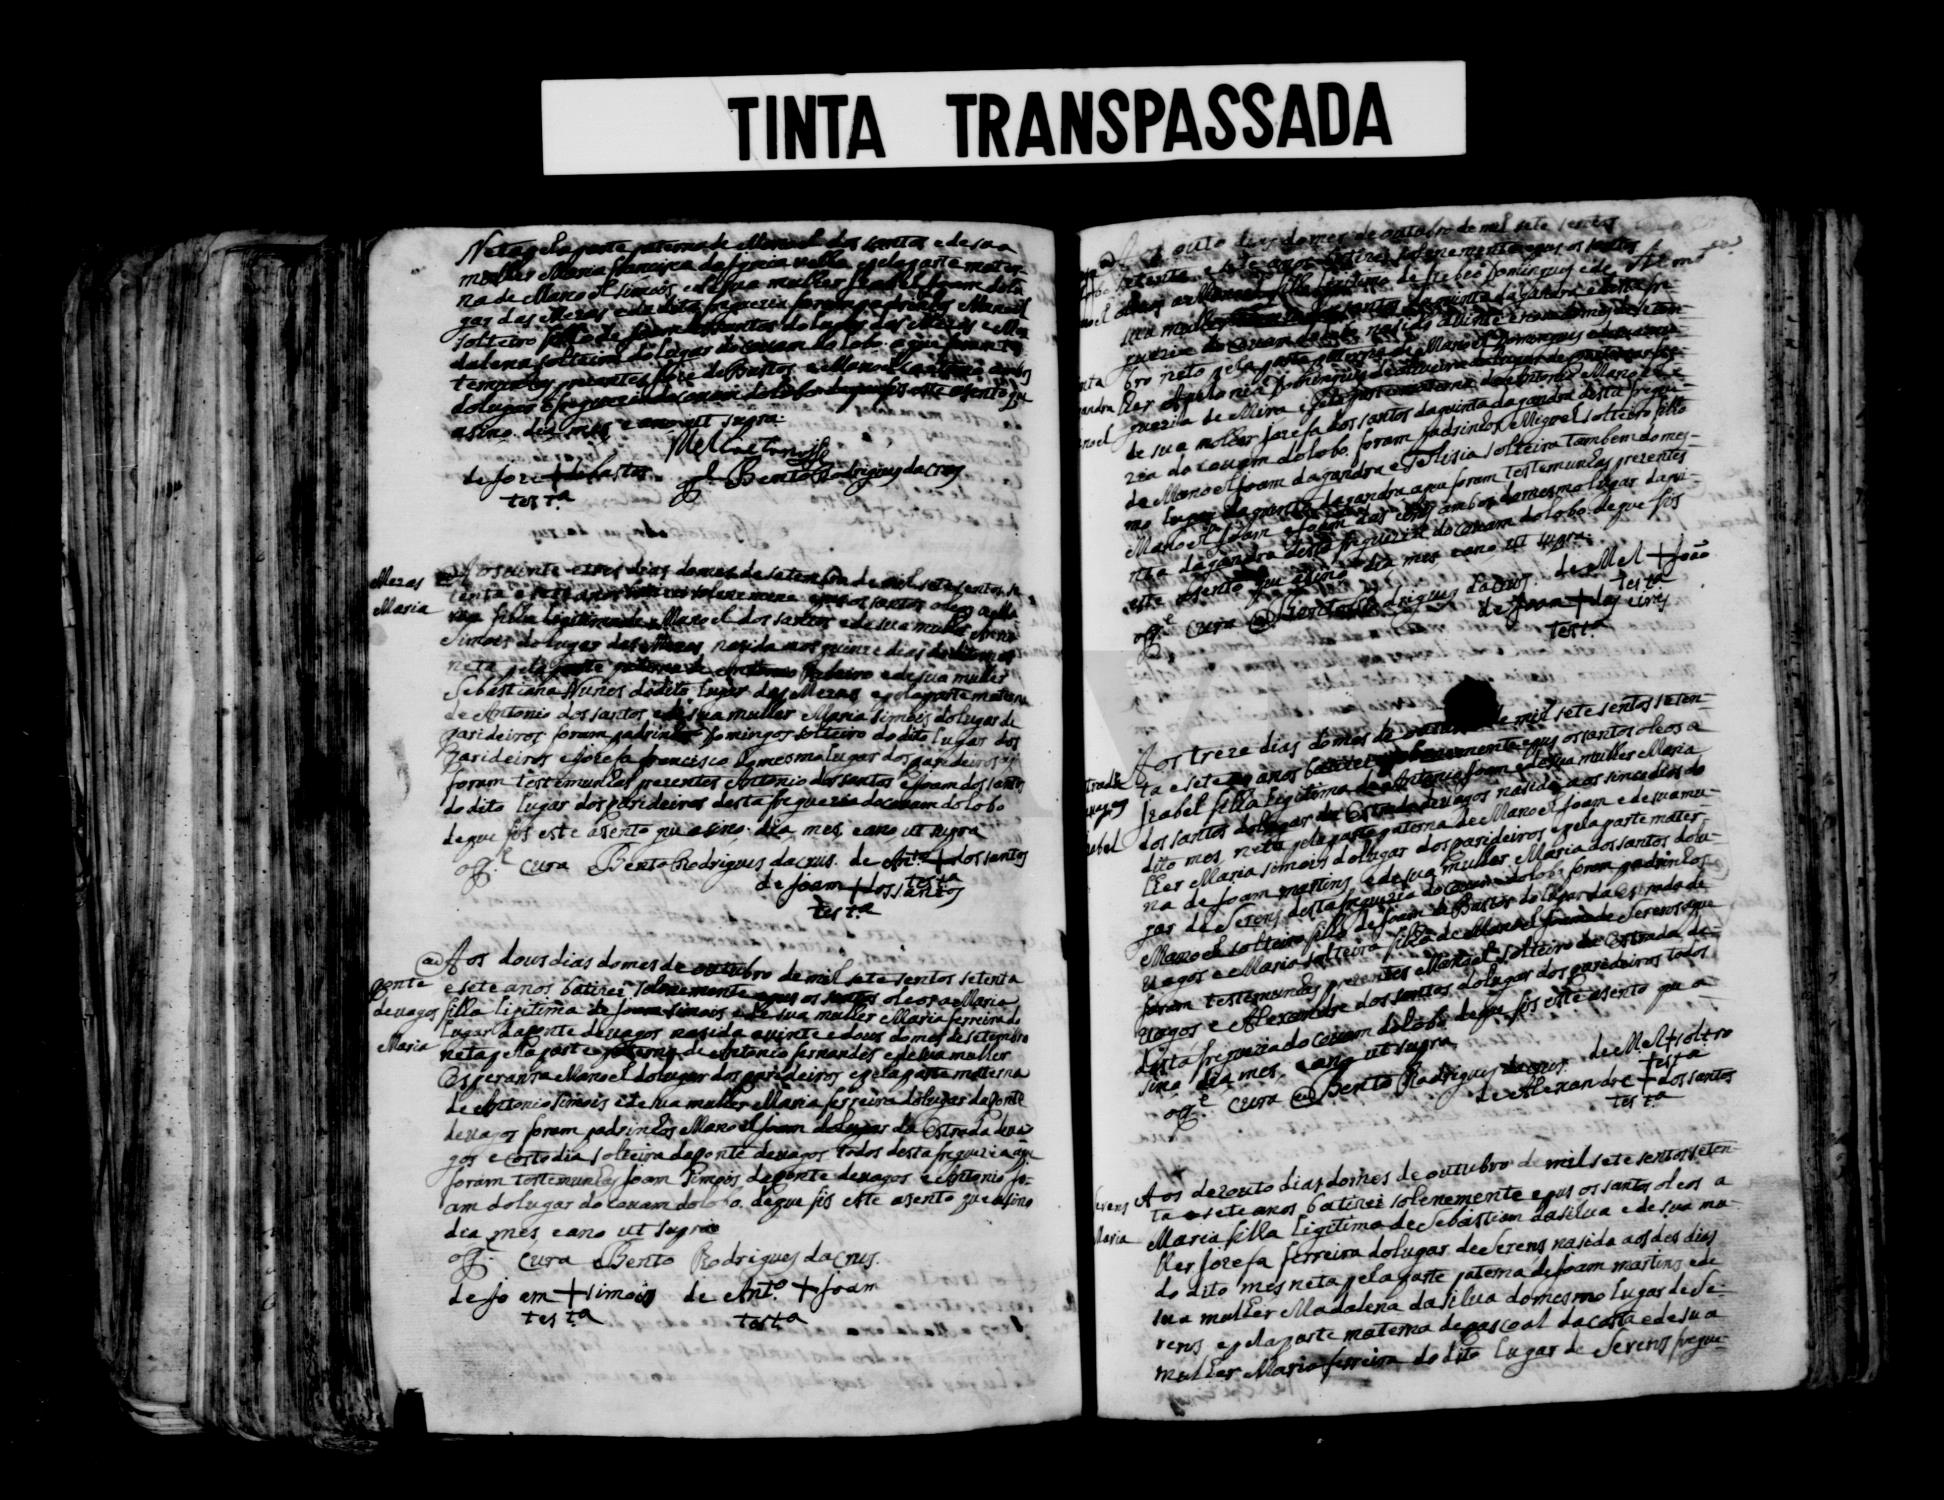 TINTA TRANSPASSADA
Neta pela parte paterna de Manoel dos santos e de sua
mulher Maria francisca da e pela parte mater-
na de Manoel simois e de sua mulher Izabel Joam do lu
gar das Mezas e da dita freguezia foram padrinhos Manoel
solteiro filho de Joam dos santos do lugar das Mezas e Ma
dalena solteira do lugar do couam do lobo a que foram tes
temunhas prezentes Joze de Bastos e Manoel ambos
do lugar e freguezia do couam do lobo de que fis este asento qu
asino dia mes e ano ut supra
Bento Rodrigues da crus
de Joze + de bastos
test.ª
Mezas
Maria
Aos vinte e tres dias do mes de setembro de mil sete sentos se
tenta e sete anos batizei solenemente e pus os santos oleos a Ma
ria filha legitima de Manoel dos santos e de sua mulher
Simois do lugar das Mezas nasida aos quinze dias do dito mes
neta pela parte paterna de Antonio Ribeiro e de sua mulher
Sebastiana Nunes do dito lugar das Mezas e pela parte materna
de Antonio dos santos e de sua mulher Maria simois do lugar de
parideiros foram padrinhos Domingos solteiro do dito lugar dos
Parideiros e Jozefa francisco do mesmo lugar dos parideiros a q
foram testemunhas prezentes Antonio dos santos e Joam dos santos
do dito lugar dos parideiros desta freguezia do couam do lobo
de que fis este asento qu asino dia mes e ano ut supra
O P.e Cura Bento Rodrigues da crus. de Ant.º + dos santos
test.ª
de Joam + dos santos
test.ª
Ponte
de uagos
Maria
Aos dous dias do mes de outubro de mil sete sentos setenta
e sete anos batizei solenemente e pus os santos oleos a Maria
filha legitima de Joam simois e de sua mulher Maria ferreira do
lugar da ponte de uagos nasida a uinte e dous do mes de setembro
neta pela parte paterna de Antonio fernandes e de sua mulher
Esperansa Manoel do lugar dos parideiros e pela parte materna
de Antonio simois e de sua mulher Maria ferreira do lugar da ponte
de uagos foram padrinhos Manoel Joam do lugar da Estrada de ua
gos e Costodia solteira da ponte de uagos todos desta freguezia a que
foram testemunhas Joam Simois da ponte de uagos e Antonio Jo-
am do lugar do couam do lobo. de que fis este asento que asino
dia mes e ano ut supra
O P.e Cura Bento Rodrigues da Crus.
de Jo am + simois de Ant.º + Joam
test.ª test.ª
Aos outo dias do mes de outubro de mil sete sentos
setenta e sete anos batizei solenemente e pus os santos
oleos a Manoel filho legitimo de Domingues e de
sua mulher dos santos da quinta da gandra desta fre
guezia do couam do lobo nasido a uinte e do mes de setem-
bro neto pela parte paterna de Manoel Domingues e de sua mu
lher Apelonia Domingues do lugar de fre
guezia de Mira e pela parte materna de Antonio Manoel e
de sua molher Jozefa dos santos da quinta da gandra desta fregue-
zia do couam do lobo. foram padrinhos Miguel solteiro filho
de Manoel Joam da gandra e solteira tambem do mes-
mo lugar da quinta da gandra a que foram testemunhas prezentes
Manoel Joam e Joam das ambos do mesmo lugar da qui-
nta da gandra desta freguezia do couam do lobo. de que fis
este asento que asino dia mes e ano ut supra.
O P.e Cura Bento Rodrigues da crus de M.el + Joaõ
test.ª
de Joam + das
test.ª
Aos treze dias do mes de outubro de mil sete sentos seten-
ta e sete anos batizei solenemente e pus os santos oleos a
Izabel filha legitima de Antonio Joam e de sua mulher Maria
dos santos do lugar da Estrada de uagos nasida aos sinco dias do
dito mes, neta pela parte paterna de Manoel Joam e de sua mu-
lher Maria simois do lugar dos parideiros e pela parte mater-
na de Joam martins e de sua mulher Maria dos santos do lu-
gar de Serens desta freguezia do couam do lobo foram padrinhos
Manoel solteiro filho de Joam de Bastos do lugar da estrada de
uagos e Maria solteira filha de Manoel Joam de Serens a que
foram testemunhas prezentes Manoel solteiro da Estrada de
uagos e Alexandre dos santos do lugar dos parideiros todos
desta freguezia do couam do lobo de que fis este asento que a
sino dia mes, e ano ut supra.
O P.e Cura Bento Rodrigues da crus. de M.el + soltro
test.ª
de Alexandre + dos santos
test.ª
Aos dezouto dias do mes de outubro de mil sete sentos seten-
ta e sete anos batizei solenemente e pus os santos oleos a
Maria filha legitima de Sebastiam da silua e de sua mu-
lher Jozefa ferreira do lugar de Serens nasida aos des dias
do dito mes neta pela parte paterna de Joam martins e de
sua mulher Madalena da silua do mesmo lugar de Se-
rens e pela parte materna de pascoal da costa e de sua
mulher Maria ferreira do dito lugar de Serens fregue-